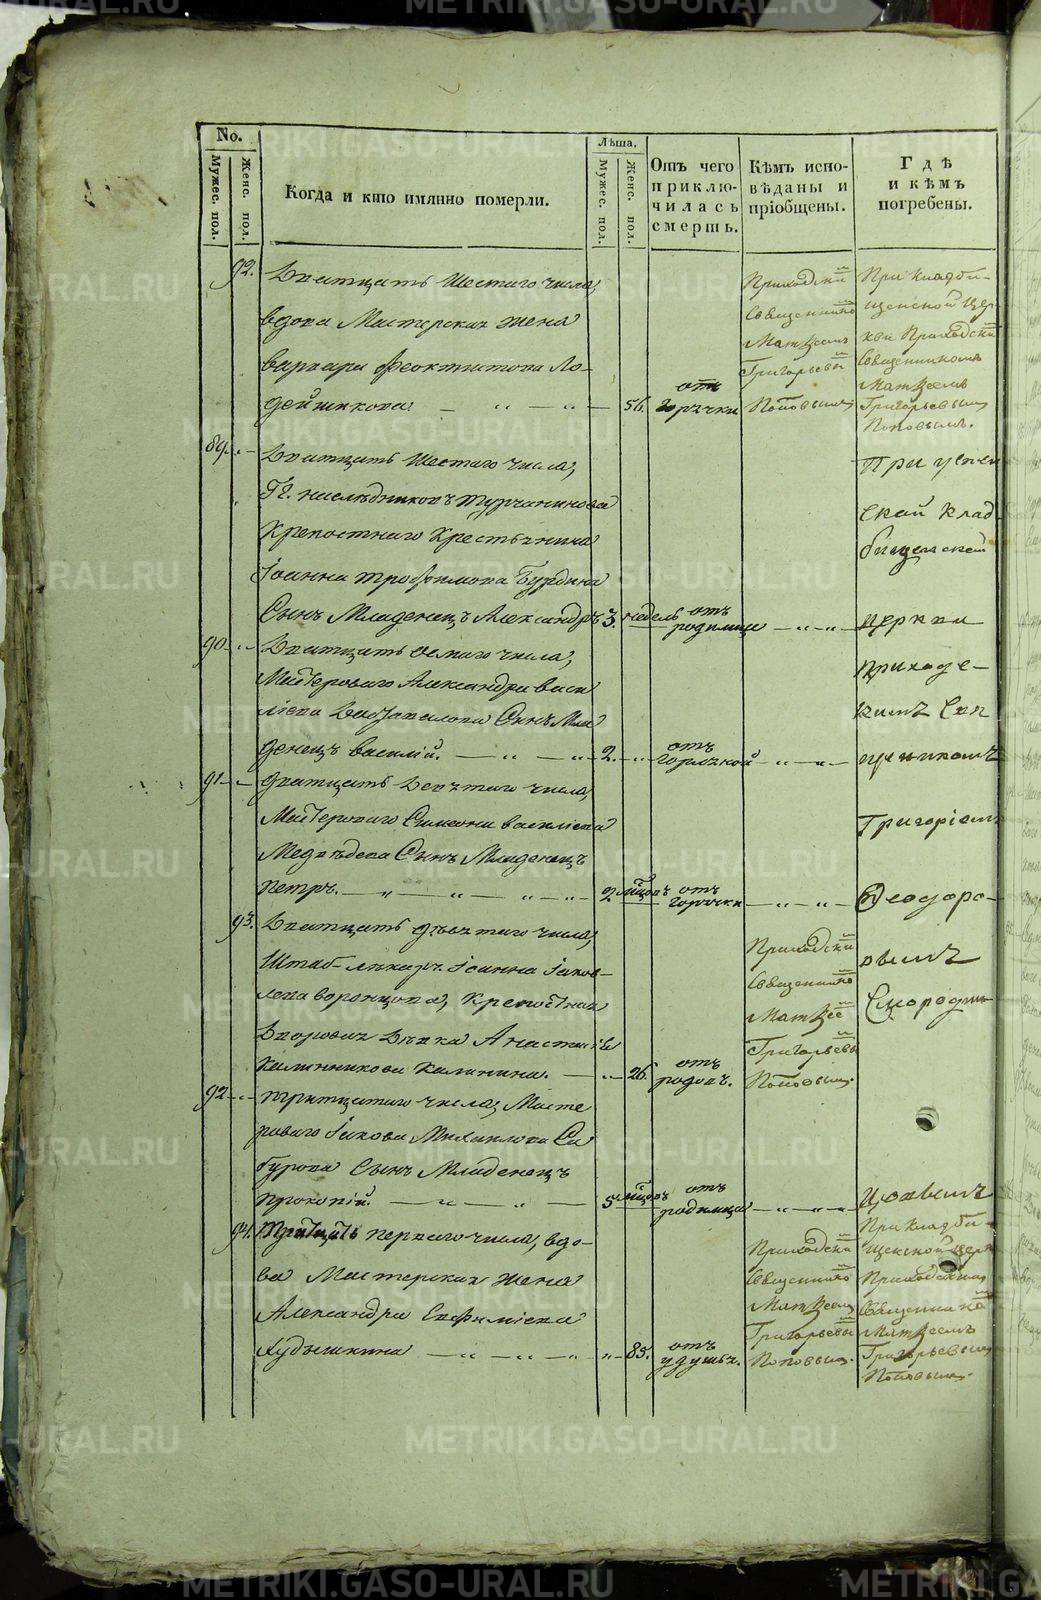 No.
Мужес. пол.
Женс. пол.
Когда и кто имянно померли.
Лѣта.
Мужес. пол.
Женс. пол.
Отъ чего приклю-чилась смерть.
Кѣмъ испо-вѣданы и пріобщены.
Гдѣ и кѣмъ погребены.
92.
Дватцать шестаго числа,
вдова Мастерская жена
Варвара Феоктистова Ло-
дейщикова.
56.
отъ
горячки
Приходскій
Священнико
Матѳеемъ
Григорьевы
Поповымъ
При кладби-
щенской Цер
кви Приходскій
Священникомъ
Матѳеемъ
Григорьевымъ
Поповымъ.
89.
Дватцать шестаго числа,
Гг. наслѣдниковъ Турчанинова
Крепостнаго Крестьянина
Іоанна Трофимова Бурдина
Сынъ Младенецъ Александръ
3. недель
отъ
родимца
90
Дватцать осмаго числа,
Мастероваго Александра Васи
сынъ Мла
денецъ Василій.
2.
отъ
91
Дватцать девятаго числа,
Мастероваго Симеона Василіева
Медвѣдева Сынъ Младенецъ
Петръ.
2 мѣсяцовъ
отъ
горячки
При успен
ской Клад
бищенской
церкви
приходс-
кимъ Свя
щенникомъ
Григоріемъ
Ѳеодоро-
вымъ
93.
Дватцать девятаго числа,
Штаб-лѣкаря Іоанна Іаков-
лева Воронцова, крепостная
Дворовая Дѣвка Анастасія
Калинникова Калинина.
26.
отъ
родовъ.
Приходскій
Священнико
Матѳее
Григорьевы
Поповымъ.
92
тритцатаго числа, Масте
роваго Іакова Михаилова Са
бурова Сынъ Младенецъ
Прокопій.
5 мѣсяцовъ
отъ
родимца
94.
Тритцать перваго числа, вдо-
ва Мастерская жена
Александра Евфиміева
Худышкина
85.
отъ
удушья.
Приходскій
Священнико
Матѳеемъ
Григорьевы
Поповымъ.
При кладби-
щенской церк
Приходскимъ
Священнико
Матѳеемъ
Григорьевымъ
Поповымъ.
METRIKI.GASO-URAL.RU